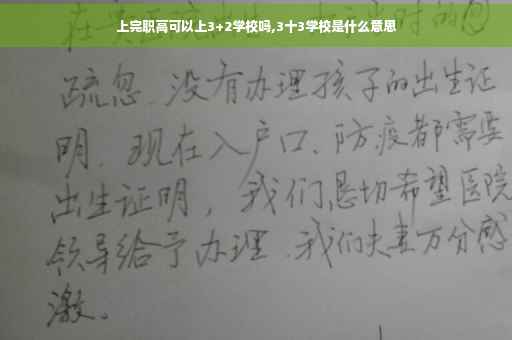 上完职高可以上3+2学校吗,3十3学校是什么意思
疏忽、没有办理孩子的出生证
明、现在入户口、防疫都需要
出生证明，我们恳切希望医院
领导给予办理、我们夫妻万分感
激。